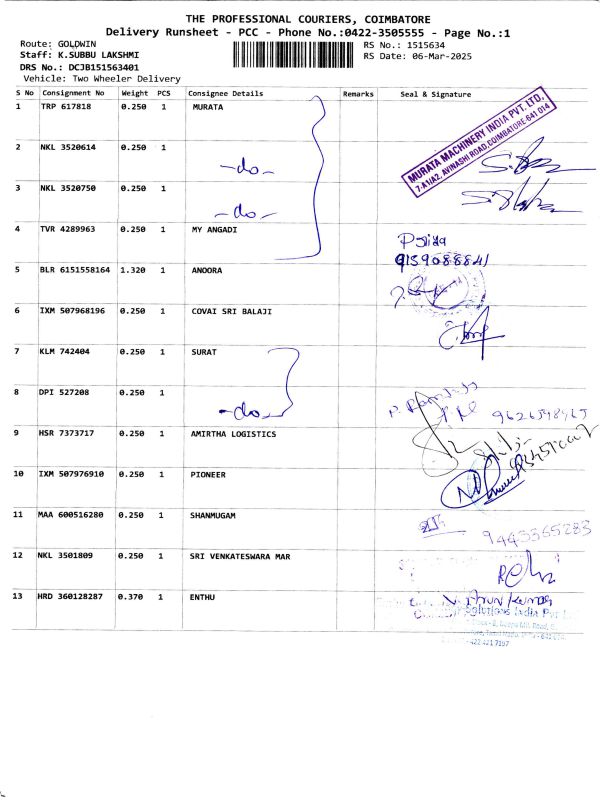 THE PROFESSIONAL COURIERS, COIMBATORE
Delivery Runsheet - PCC - Phone No.:0422-3505555 - Page No.:1
Route: GOLDWIN
RS No.: 1515634
Staff: K.SUBBU LAKSHMI
RS Date: 06-Mar-2025
DRS No.: DCJB151563401
Vehicle: Two Wheeler Delivery
S No Consignment No Weight PCS Consignee Details Remarks Seal & Signature
1 TRP 617818 0.250 1 MURATA
MURATA MACHINERY INDIA PVT. LTD,
7-A1/A2, AVINASHI ROAD, COIMBATORE-641 014
2 NKL 3520614 0.250 1
-do-
3 NKL 3520750 0.250 1
-do-
4 TVR 4289963 0.250 1 MY ANGADI
9159088841
5 BLR 6151558164 1.320 1 ANOORA
6 IXM 507968196 0.250 1 COVAI SRI BALAJI
7 KLM 742404 0.250 1 SURAT
8 DPI 527208 0.250 1
-do-
9 HSR 7373717 0.250 1 AMIRTHA LOGISTICS
10 IXM 507976910 0.250 1 PIONEER
11 MAA 600516280 0.250 1 SHANMUGAM
9443365283
12 NKL 3501809 0.250 1 SRI VENKATESWARA MAR
13 HRD 360128287 0.370 1 ENTHU
Solutions India Pvt